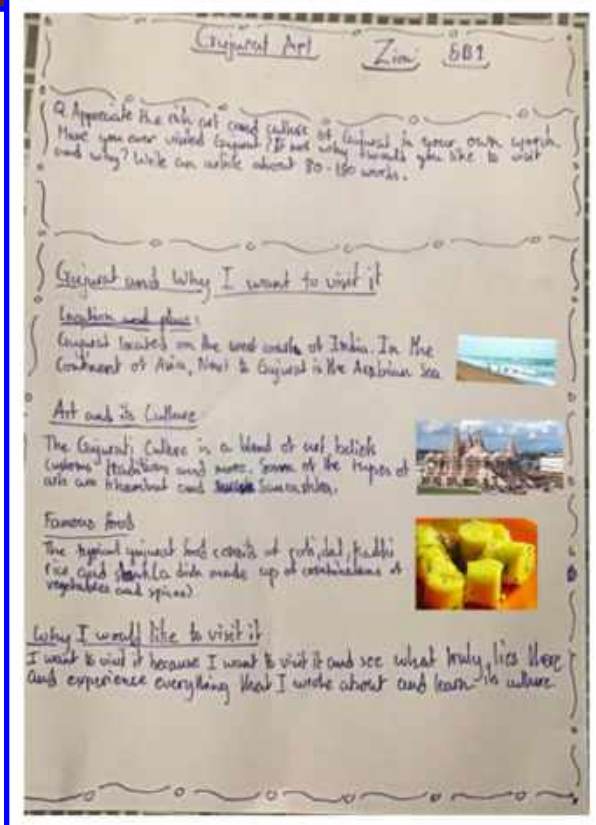 Gujurat Art Zion 6B1
Q Appreciate the rich art and culture of Gujurat in your own words.
Have you ever visited Gujurat? If not why would you like to visit
and why? Write an article about 80-150 words.
Gujurat and Why I want to visit it
Location and place:
Gujurat located on the west coasts of India. In the
Continent of Asia, Next to Gujurat is the Arabian Sea
Art and its Culture
The Gujurati Culture is a blend of art, beliefs
customs tradition and more. Some of the types of
arts are and Saurashtra.
Famous food
The typical gujurat food consits of roti, dal, kadhi
rice and (a dish made up of combinations of
vegetables and spices)
Why I would like to visit it:
I want to visit it because I want to visit it and see what truly lies there
and experience everything that I wrote about and learn its culture